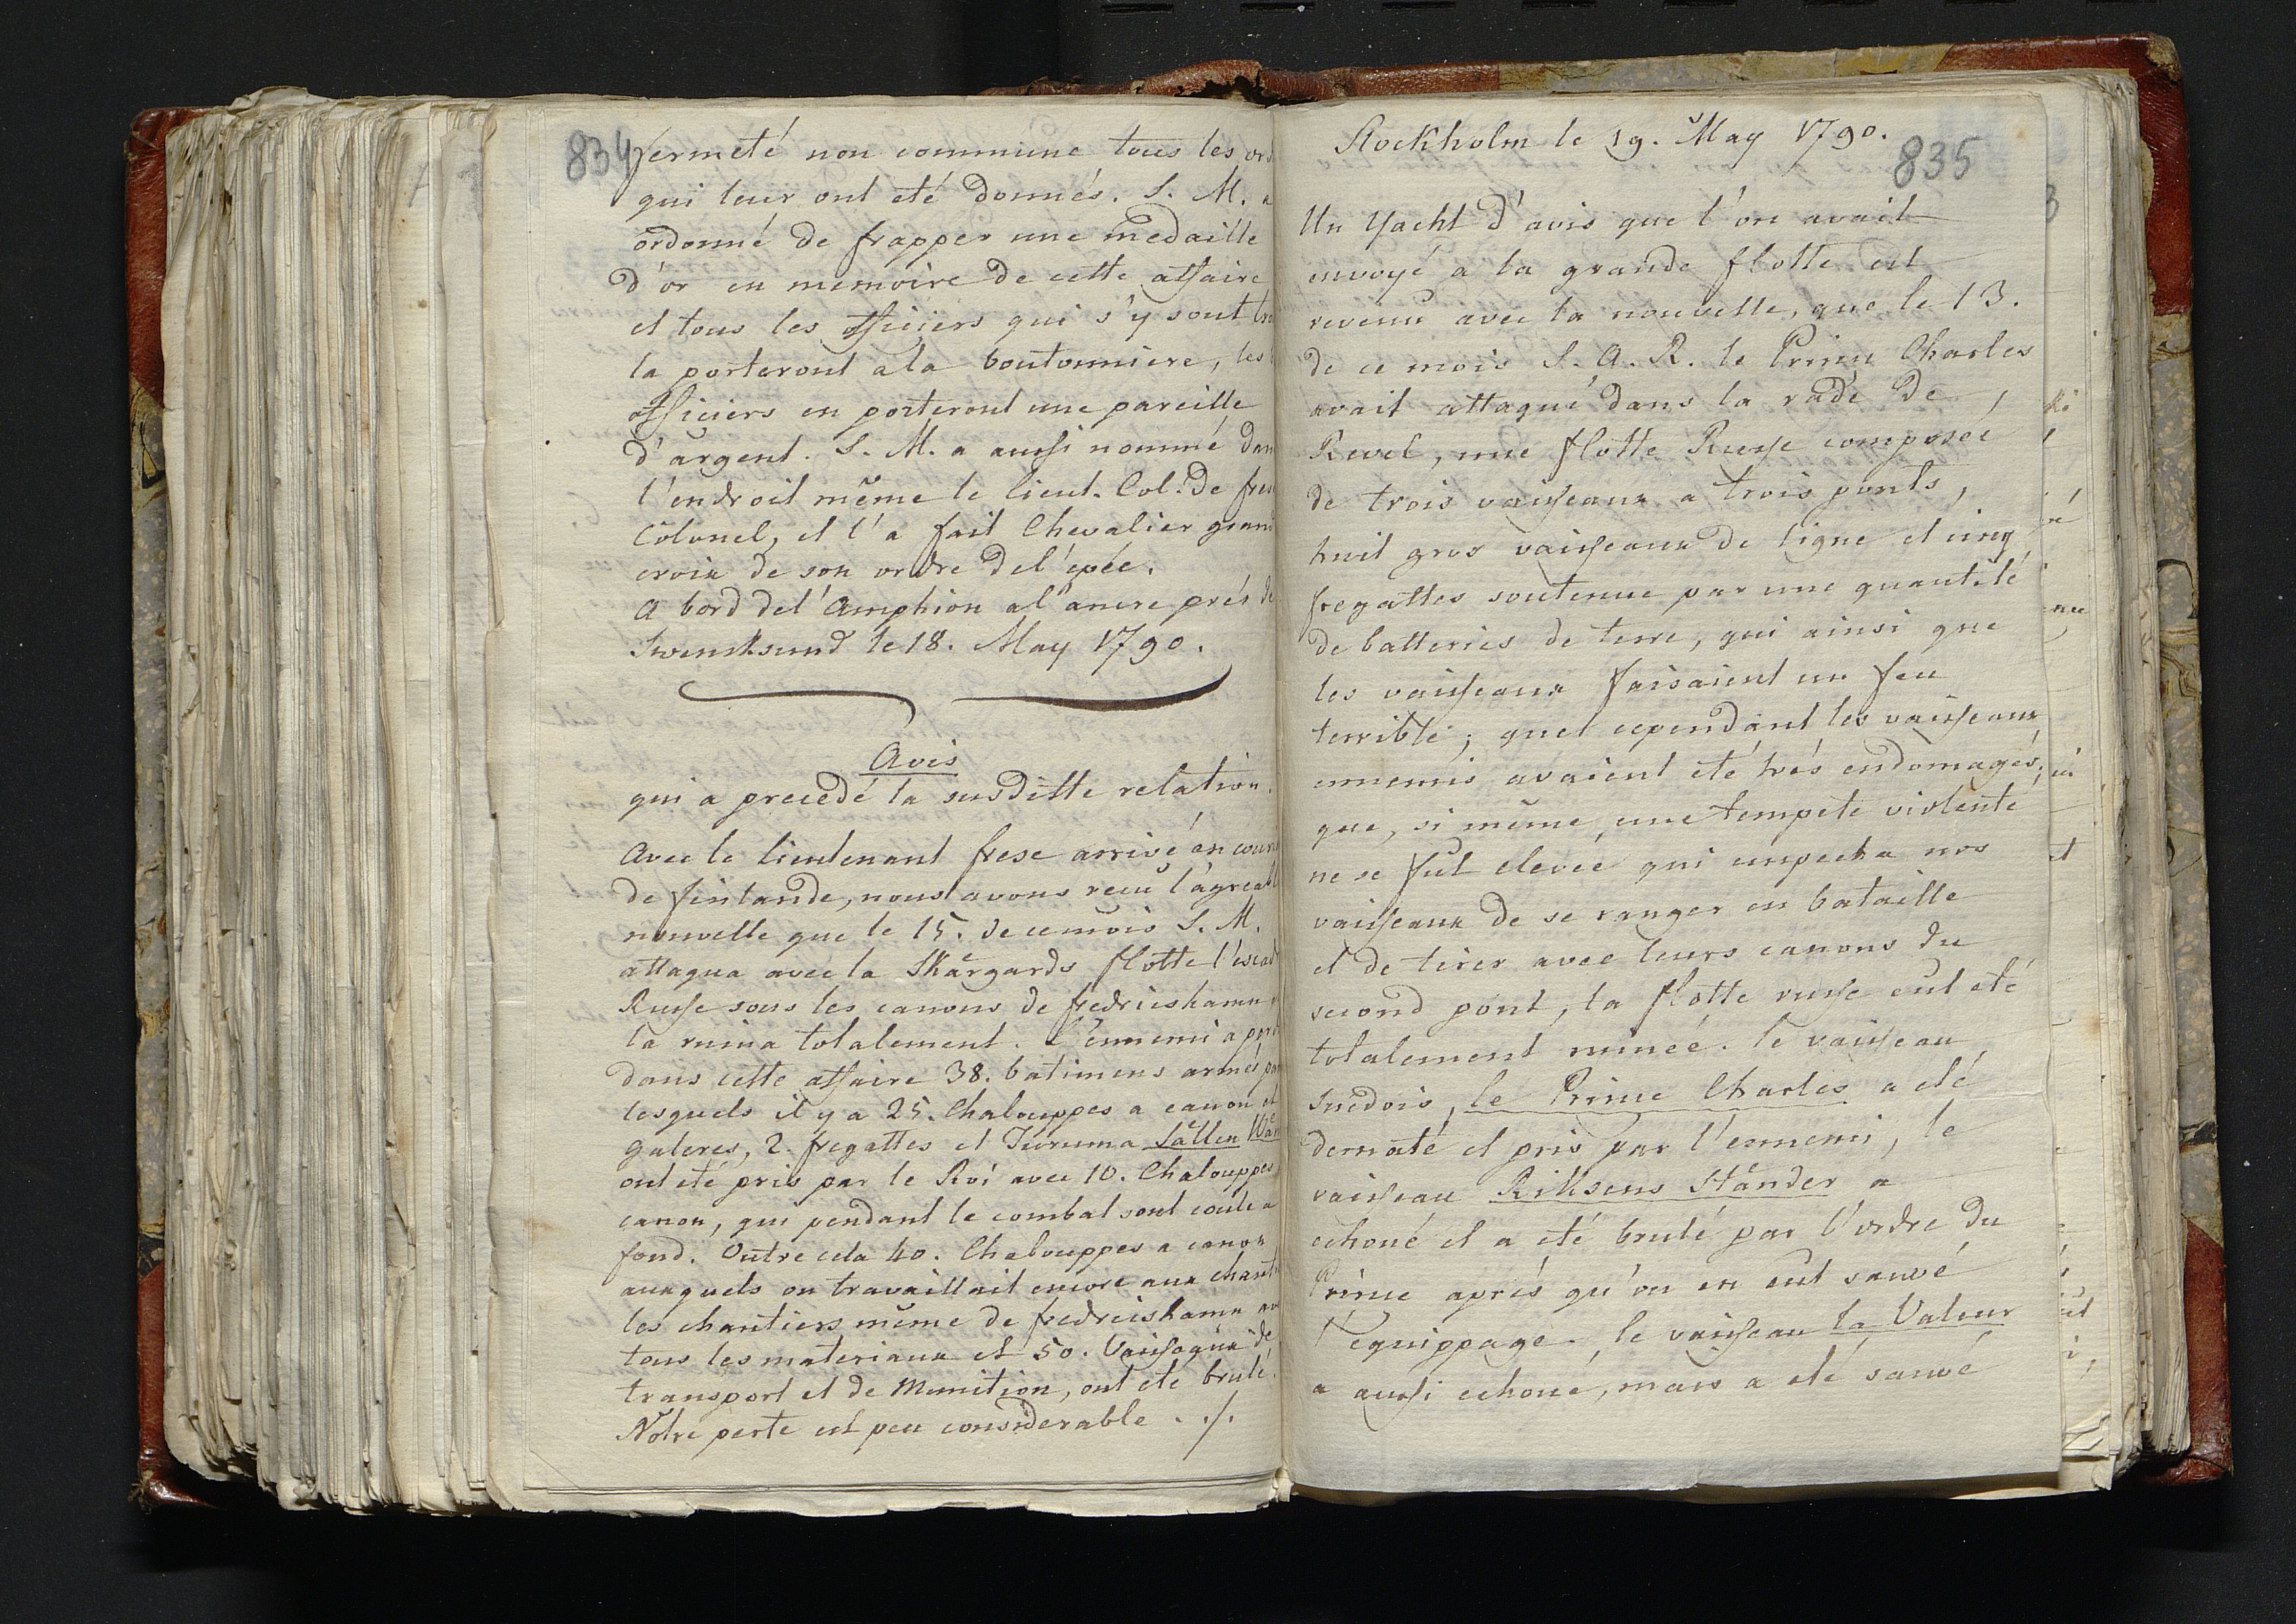 834
fermeté non commune tous les ord
qui leur ont eté donnés. S. M. a
ordonné de frapper une medaille
d'or en memoire de cette affaire
et tous les officiers qui s'y sont tro
la porteront a la boutonniere, les
officiers en porteront une pareille
d'argent. S. M. a aussi nommé dan
l'endroit même le lieut. Col. de frese
Colonel, et l'a fait Chevalier grand
croix de son ordre del'épée.
A bord del'Amphion al'ancre prés de
Swensksund le 18. May 1790.
Avis
qui a precedé la susditte relation.
Avec le lieutenant frese arrivé en cour
de finlande, nous avons recu l'agreabl
nouvelle que le 15. de cemois S. M.
attaqua avec la Skärgards flotte l'escad
Russe sous les canons de fredricshamn
la ruina totalement. L'ennemi a per
dans cette affaire 38. batimens armés par
lesquels il y a 25. Chalouppes a canon et
galeres, 2. fregattes et Turuma Sällen Wär
ont eté pris par le Roi avec 10. Chalouppes
canon, qui pendant le combat sont coulé a
fond. Outre cela 40. Chalouppes a canon
auxquels on travaillait encore aux chant
les chantiers même de fredricshamn av
tous les materiaux et 50. Vaisseaux de
transport et de Munition, ont eté brulé.
Notre perte est peu considerable . ./.
835
Stockholm le 19. May 1790.
Un Yacht d'avis que l'on avait
envoyé a la grande flotte est
revenu avec la nouvelle, que le 13.
de ce mois S. A. R. le Prince Charles
avait attaqué dans la rade de
Revel, une flotte Russe composée
de trois vaisseaux a trois ponts,
huit gros vaisseaux de ligne et cinq
fregattes soutenue par une quantité
de batteries de terre, qui ainsi que
les vaisseaux faisaient un feu
terrible; quel cependant les vaisseaux
ennemis avaient eté trés endomagés,
que, si même, une tempete violente
ne se fut elevée qui empecha nos
vaisseaux de se ranger en bataille
et de tirer avec leurs canons du
second pont, la flotte russe eut eté
totalement ruinée. le vaisseau
suedois, le Prince Charles a eté
dematé et pris par l'ennemi, le
vaisseau Riksens Ständer a
echoué et a eté brulé par l'ordre du
Prince aprés qu'on en eut sauvé
l'equippage. le vaisseau la Valeur
a aussi echoué, mais a eté sauvé